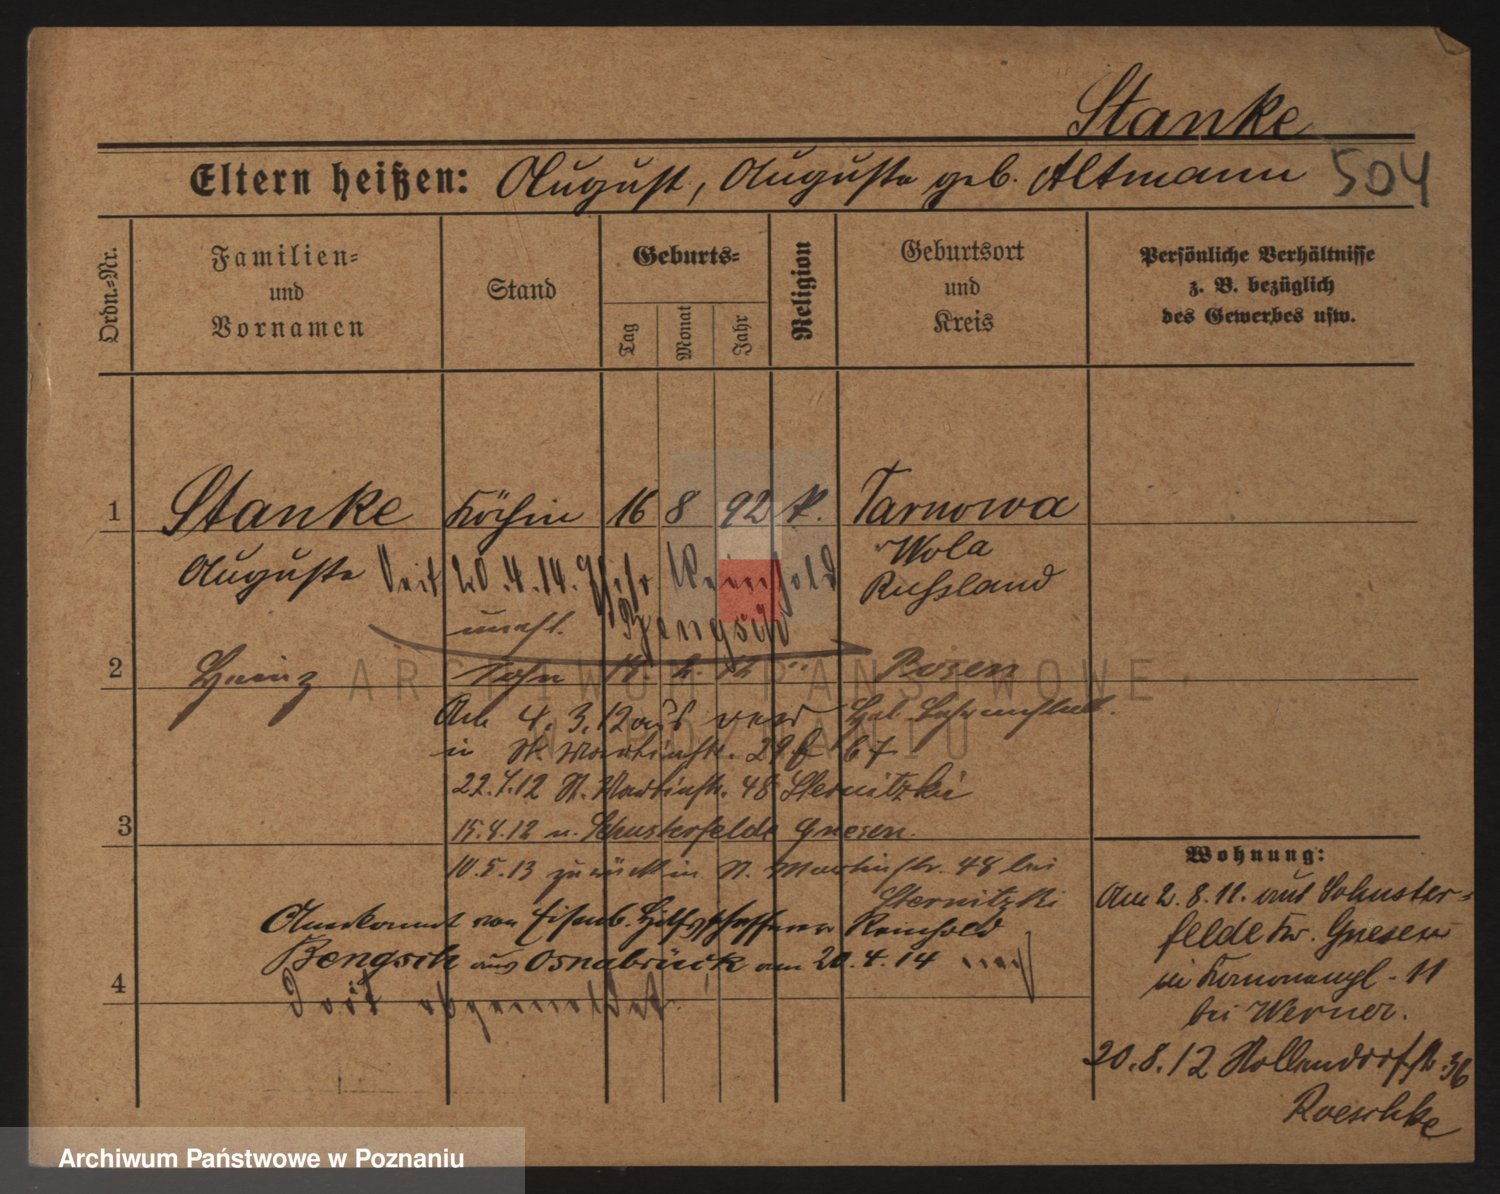 Stanke
Eltern heißen: August, Auguste geb. Altmann 504
Ordn.-Nr.
Familien-
und
Vornamen
Stand
Geburts-
Tag
Monat
Jahr
Religion
Geburtsort
und
Kreis
Persönliche Verhältnisse
z. B. bezüglich
des Gewerbes usw.
1 Stanke Köchin 16 8 92 k. Tarnowa
Wola
Auguste Seit 20.4.14. Reinhold Russland
unehl. Bengsch
2 Heinz Sohn 18. 2. 12 " Posen
Am 4. 3. 12 aus Hebammenlehranstalt.
in St. Martinstr. 29 b
22.7.12 St. Martinstr. 48 Sternitzki
3 15.8.12 n. Schusterfelde Gnesen.
10.5.13 zurück in St. Martinstr. 48 bei
Sternitzki
Reinhold
Bengsch aus Osnabrück am 20.4.14 nach
4 dort abgemeldet.
Wohnung:
Am 2.8.11. aus Schuster-
felde Kr. Gnesen
in 11
bei Werner.
20.8.12 36
Roeschke
ARCHIWUM PAŃSTWOWE
W POZNANIU
Archiwum Państwowe w Poznaniu